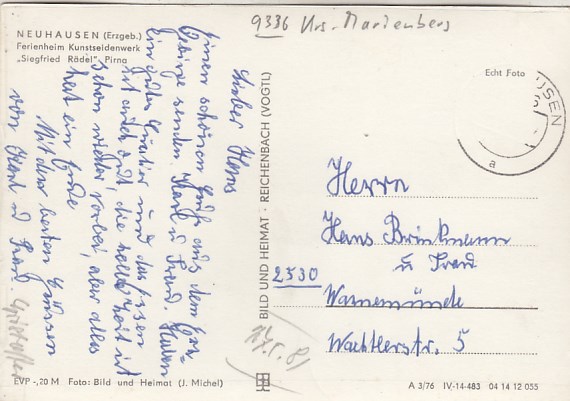 9336 Krs. Marienberg
NEUHAUSEN (Erzgeb.)
Ferienheim Kunstseidenwerk
„Siegfried Rädel", Pirna
Lieber Hans
Einen schönen Gruß aus dem Erz-
gebirge senden Karl u Frau. Haben
Ein gutes Quatier und das Essen
ist auch gut, die halbe Zeit ist
schon wieder vorbei, aber alles
hat ein Ende
Mit den besten Grüssen
von Karl u Frau.
BILD UND HEIMAT · REICHENBACH (VOGTL)
Echt Foto
USEN
a
Herrn
Hans Brinkmann
u Frau
2530
Warnemünde
Wachtlerstr. 5
EVP -,20 M Foto: Bild und Heimat (J. Michel)
A 3/76 IV-14-483 04 14 12 055